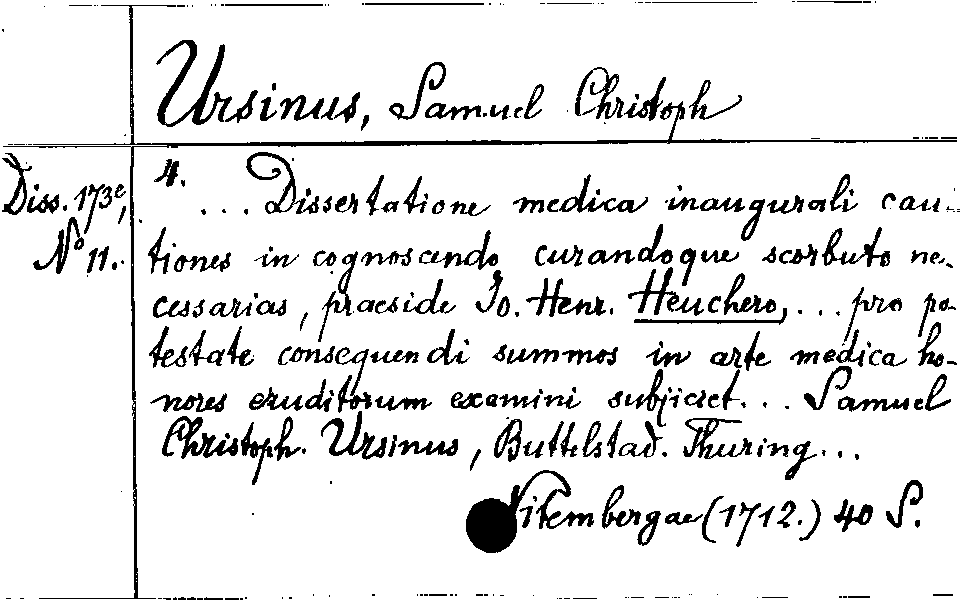 Ursinus, Samuel Christoph
Diss. 173e,
No 11.
4.
... Dissertatione medica inaugurali cau-
tiones in cognoscendo curandoque scorbuto ne-
cessarias, praeside Jo. Henr. Heuchero, ... pro po-
testate consequendi summos in arte medica ho-
nores eruditorum examini subjiciet... Samuel
Christoph. Ursinus, Buttelstad. Thuring...
Vitembergae (1712.) 40 S.